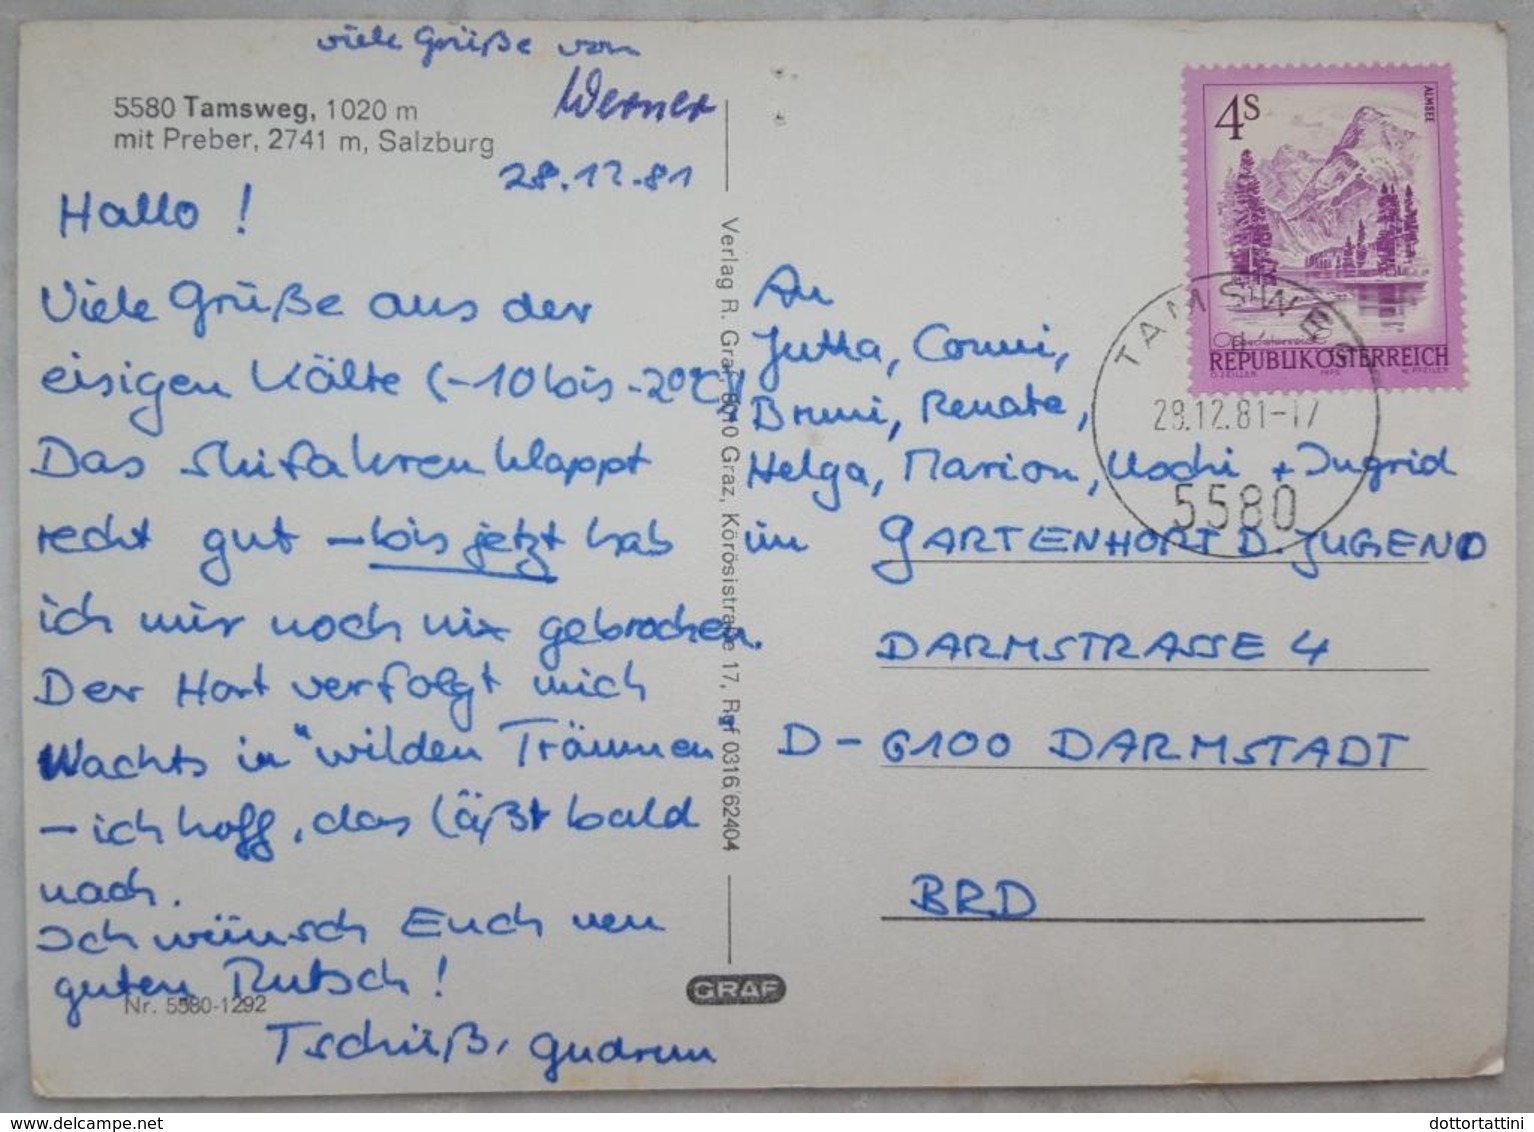 viele Grüße von
Werner
5580 Tamsweg, 1020 m
mit Preber, 2741 m, Salzburg
28.12.81
Hallo!
Viele Grüße aus der
eisigen Kälte (-10 bis -20°C)
Das Skifahren klappt
recht gut - bis jetzt hab
ich mir noch nix gebrochen.
Der Hort verfolgt mich
Nachts in "wilden Träumen"
- ich hoff, das läßt bald
nach.
Ich wünsch Euch nen
guten Rutsch!
Nr. 5580-1292
Tschüß, Gudrun
Verlag R. Graf, 8010 Graz, Körösistraße 17, Ruf 0316/62404
GRAF
4S
ALMSEE
REPUBLIK ÖSTERREICH
1975
TAMSWEG
28.12.81-17
5580
An
Jutta, Conni,
Bruni, Renate,
Helga, Marion, Uschi + Ingrid
im GARTENHORT D. JUGEND
DARMSTRASSE 4
D-6100 DARMSTADT
BRD
dottortattini